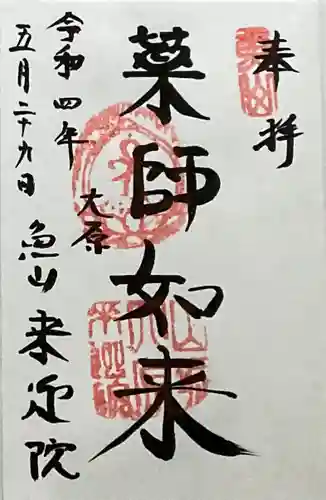 奉拝
薬師如来
大原
令和四年
五月二十九日
魚山来迎院